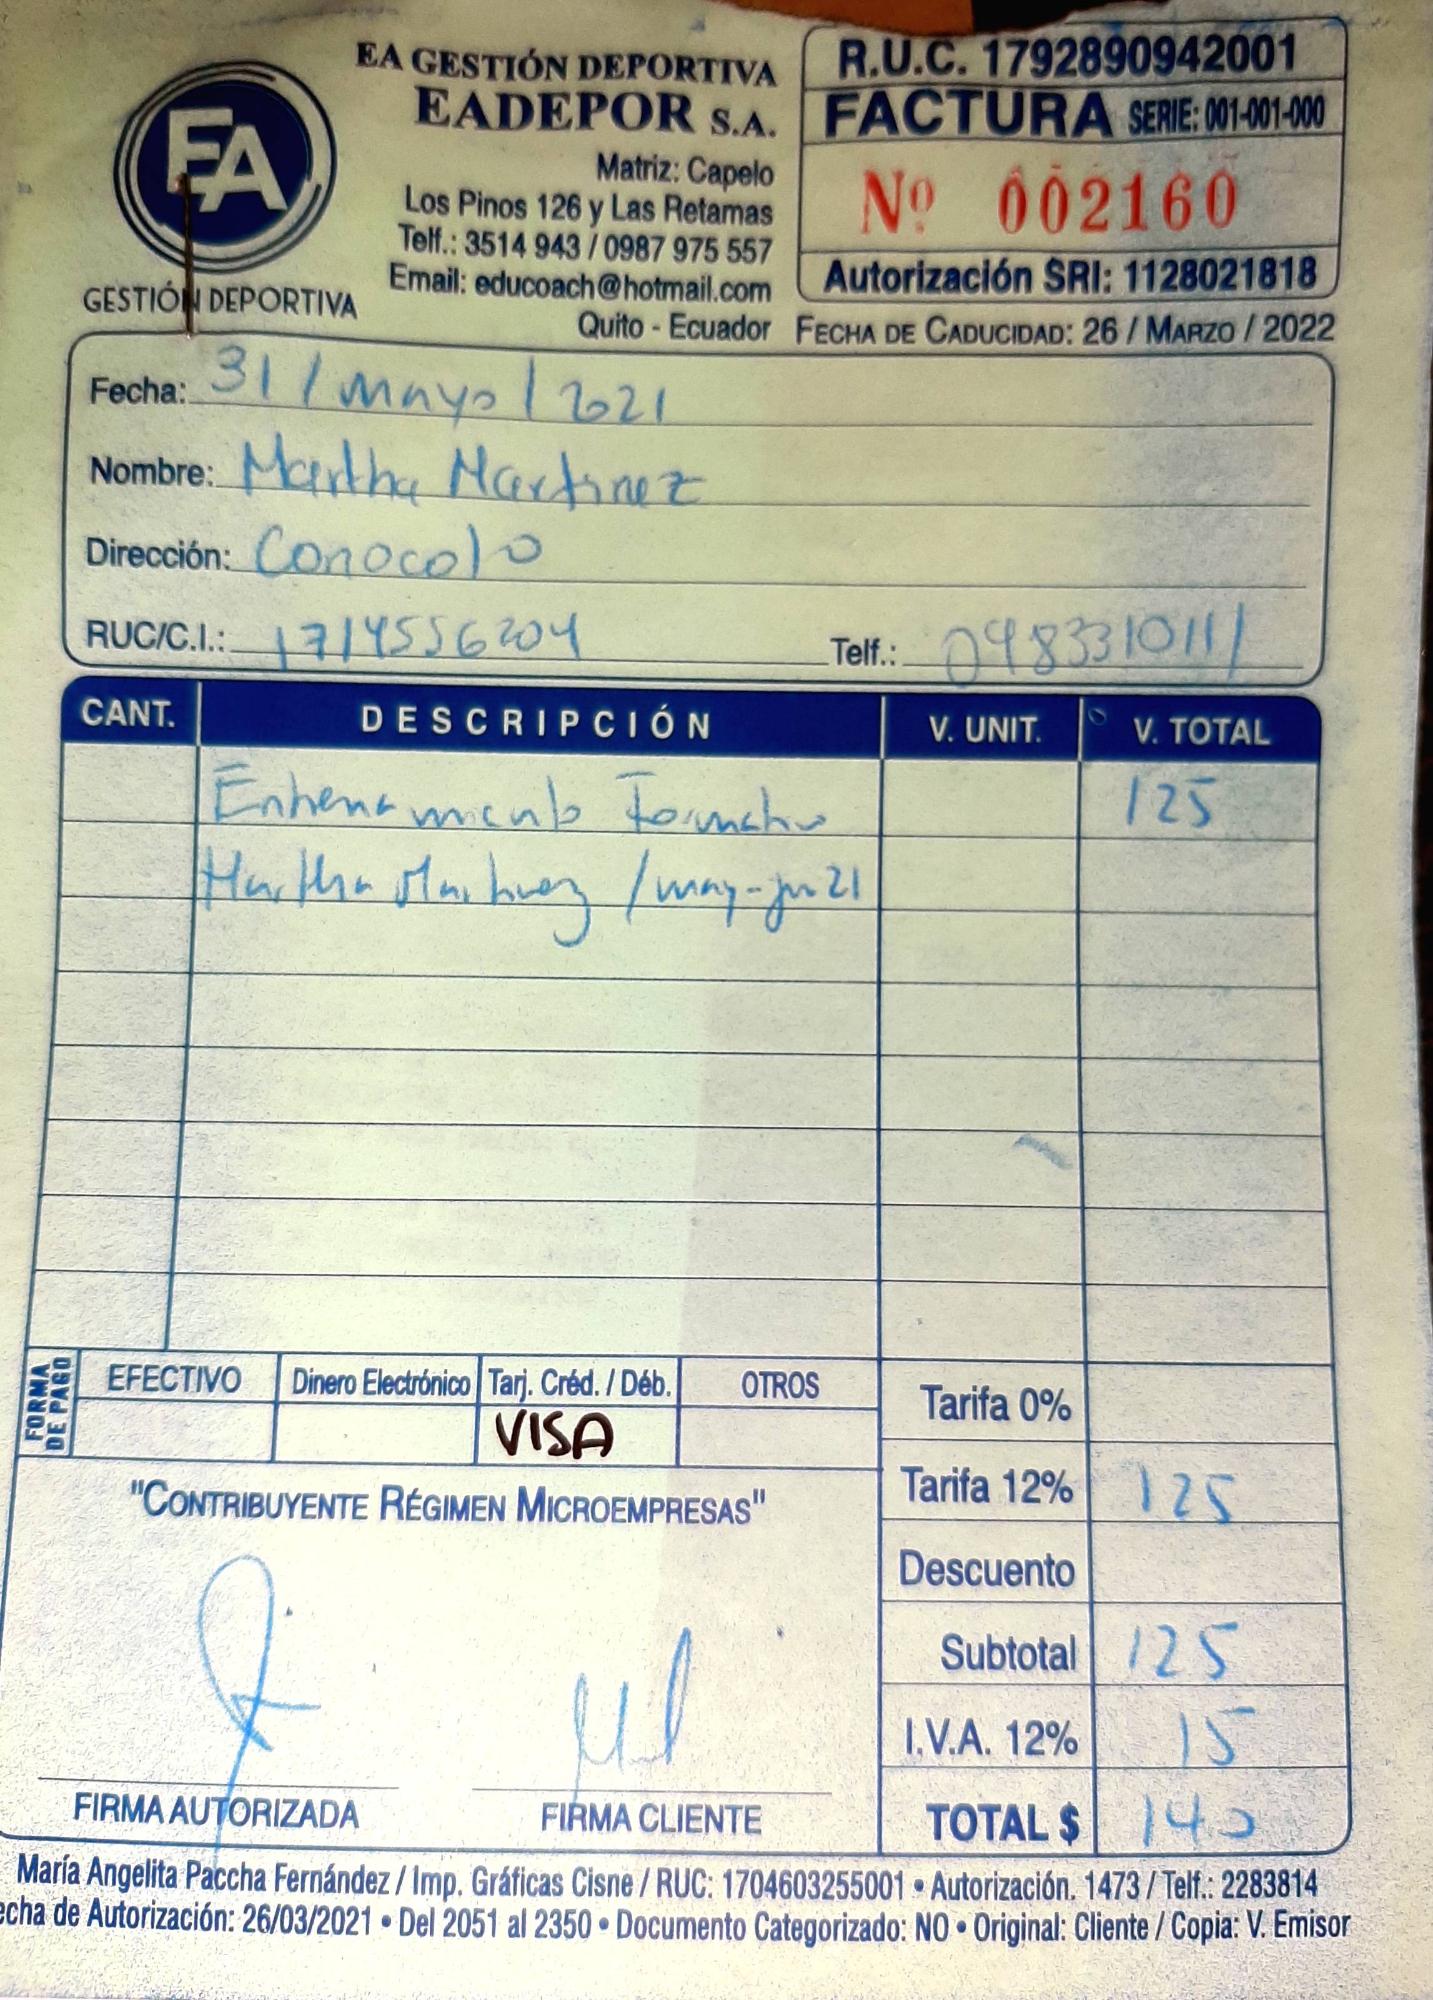 EA GESTIÓN DEPORTIVA
EADEPOR S.A.
Matriz: Capelo
Los Pinos 126 y Las Retamas
Telf.: 3514 943 / 0987 975 557
Email: educoach@hotmail.com
Quito - Ecuador
EA
GESTIÓN DEPORTIVA
R.U.C. 1792890942001
FACTURA SERIE: 001-001-000
Nº 002160
Autorización SRI: 1128021818
FECHA DE CADUCIDAD: 26 / MARZO / 2022
Fecha: 31 / mayo / 2021
Nombre: Martha Martinez
Dirección: Conocoto
RUC/C.I.: 1714556204 Telf.: 0983310111
CANT. DESCRIPCIÓN V. UNIT. V. TOTAL
Entrenamiento Formativo 125
Martha Martinez / may-jun 21
FORMA DE PAGO
EFECTIVO Dinero Electrónico Tarj. Créd. / Déb. OTROS
VISA
Tarifa 0%
Tarifa 12% 125
Descuento
Subtotal 125
I.V.A. 12% 15
TOTAL $ 140
"CONTRIBUYENTE RÉGIMEN MICROEMPRESAS"
FIRMA AUTORIZADA FIRMA CLIENTE
María Angelita Paccha Fernández / Imp. Gráficas Cisne / RUC: 1704603255001 • Autorización. 1473 / Telf.: 2283814
echa de Autorización: 26/03/2021 • Del 2051 al 2350 • Documento Categorizado: NO • Original: Cliente / Copia: V. Emisor